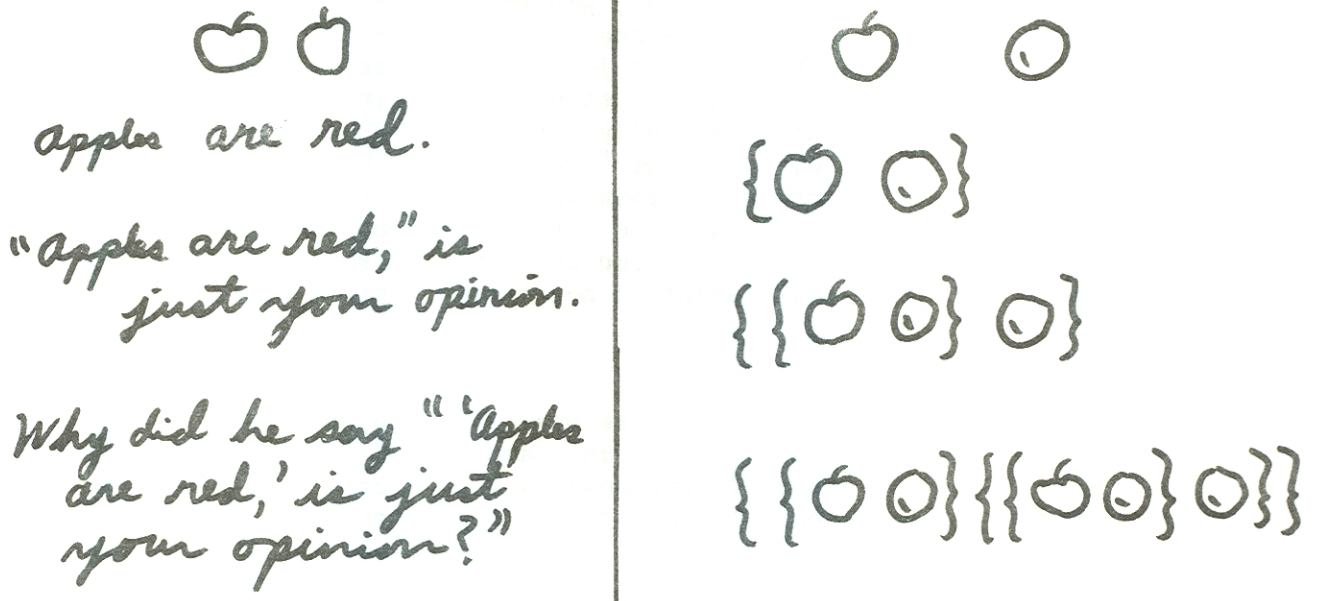 Apples are red.
"Apples are red," is
just your opinion.
Why did he say "'Apples
are red,' is just
your opinion?"
{ }
{ { } }
{ { } { { } } }